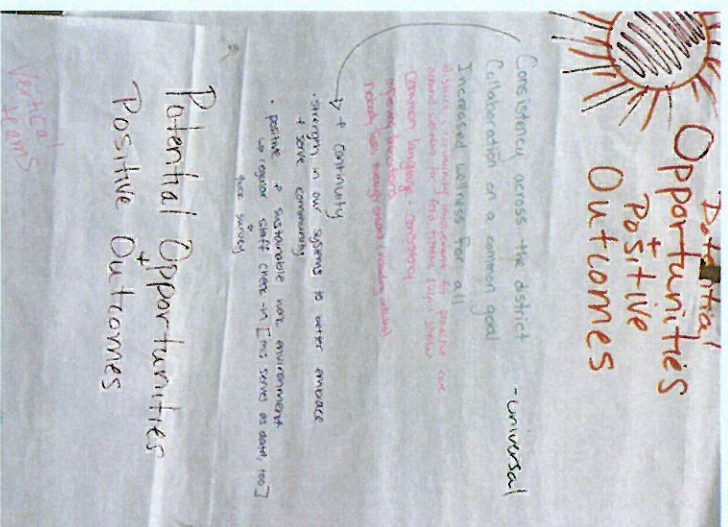 Potential
Opportunities
+
Positive
Outcomes
Consistency across the district - universal
Collaboration on a common goal
Increased wellness for all
Common language - consistency
+ continuity
• strength in our systems to better embrace
+ serve community
• positive + sustainable work environment
w regular staff check in [this serves as data, too]
quick survey
Potential Opportunities
+
Positive Outcomes
Vertical
teams